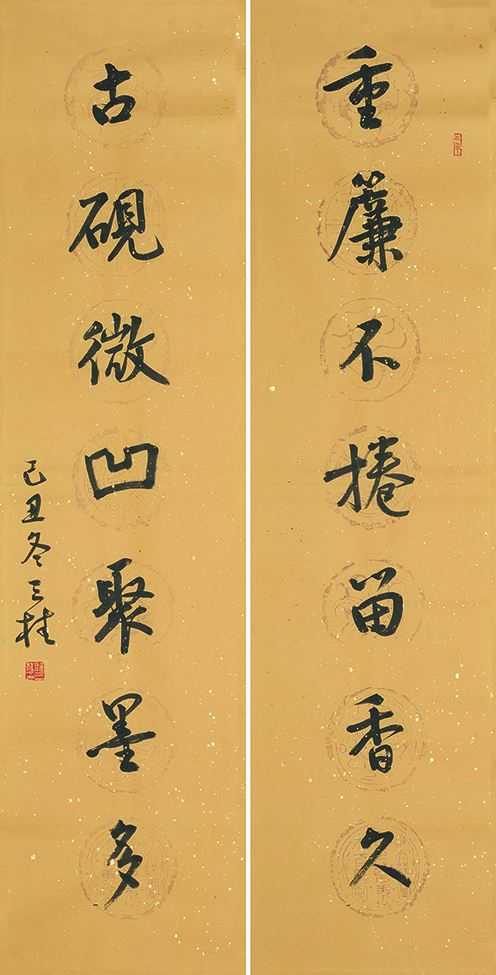 重簾不捲留香久
古硯微凹聚墨多
己丑冬三桂